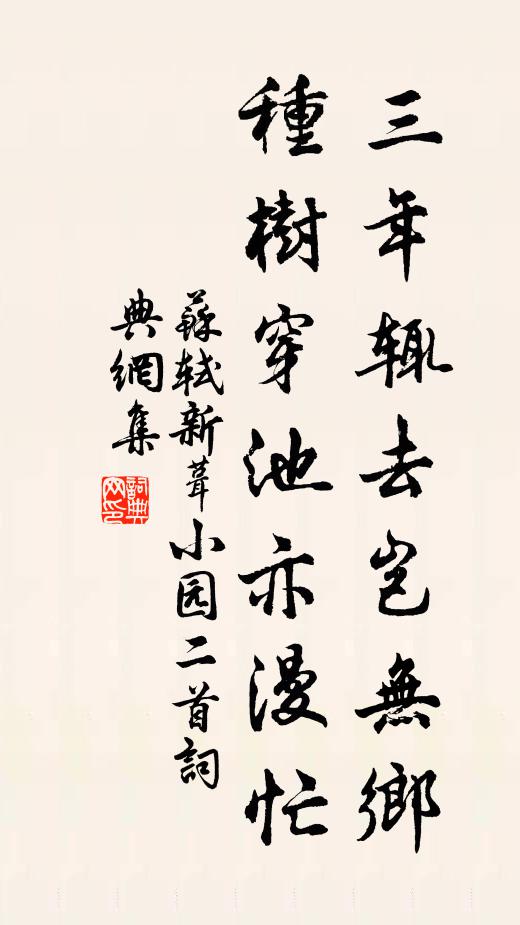 三年辄去岂無鄉
種樹穿池亦漫忙
蘇軾新葺小园二首詞
典網集
詞典网印